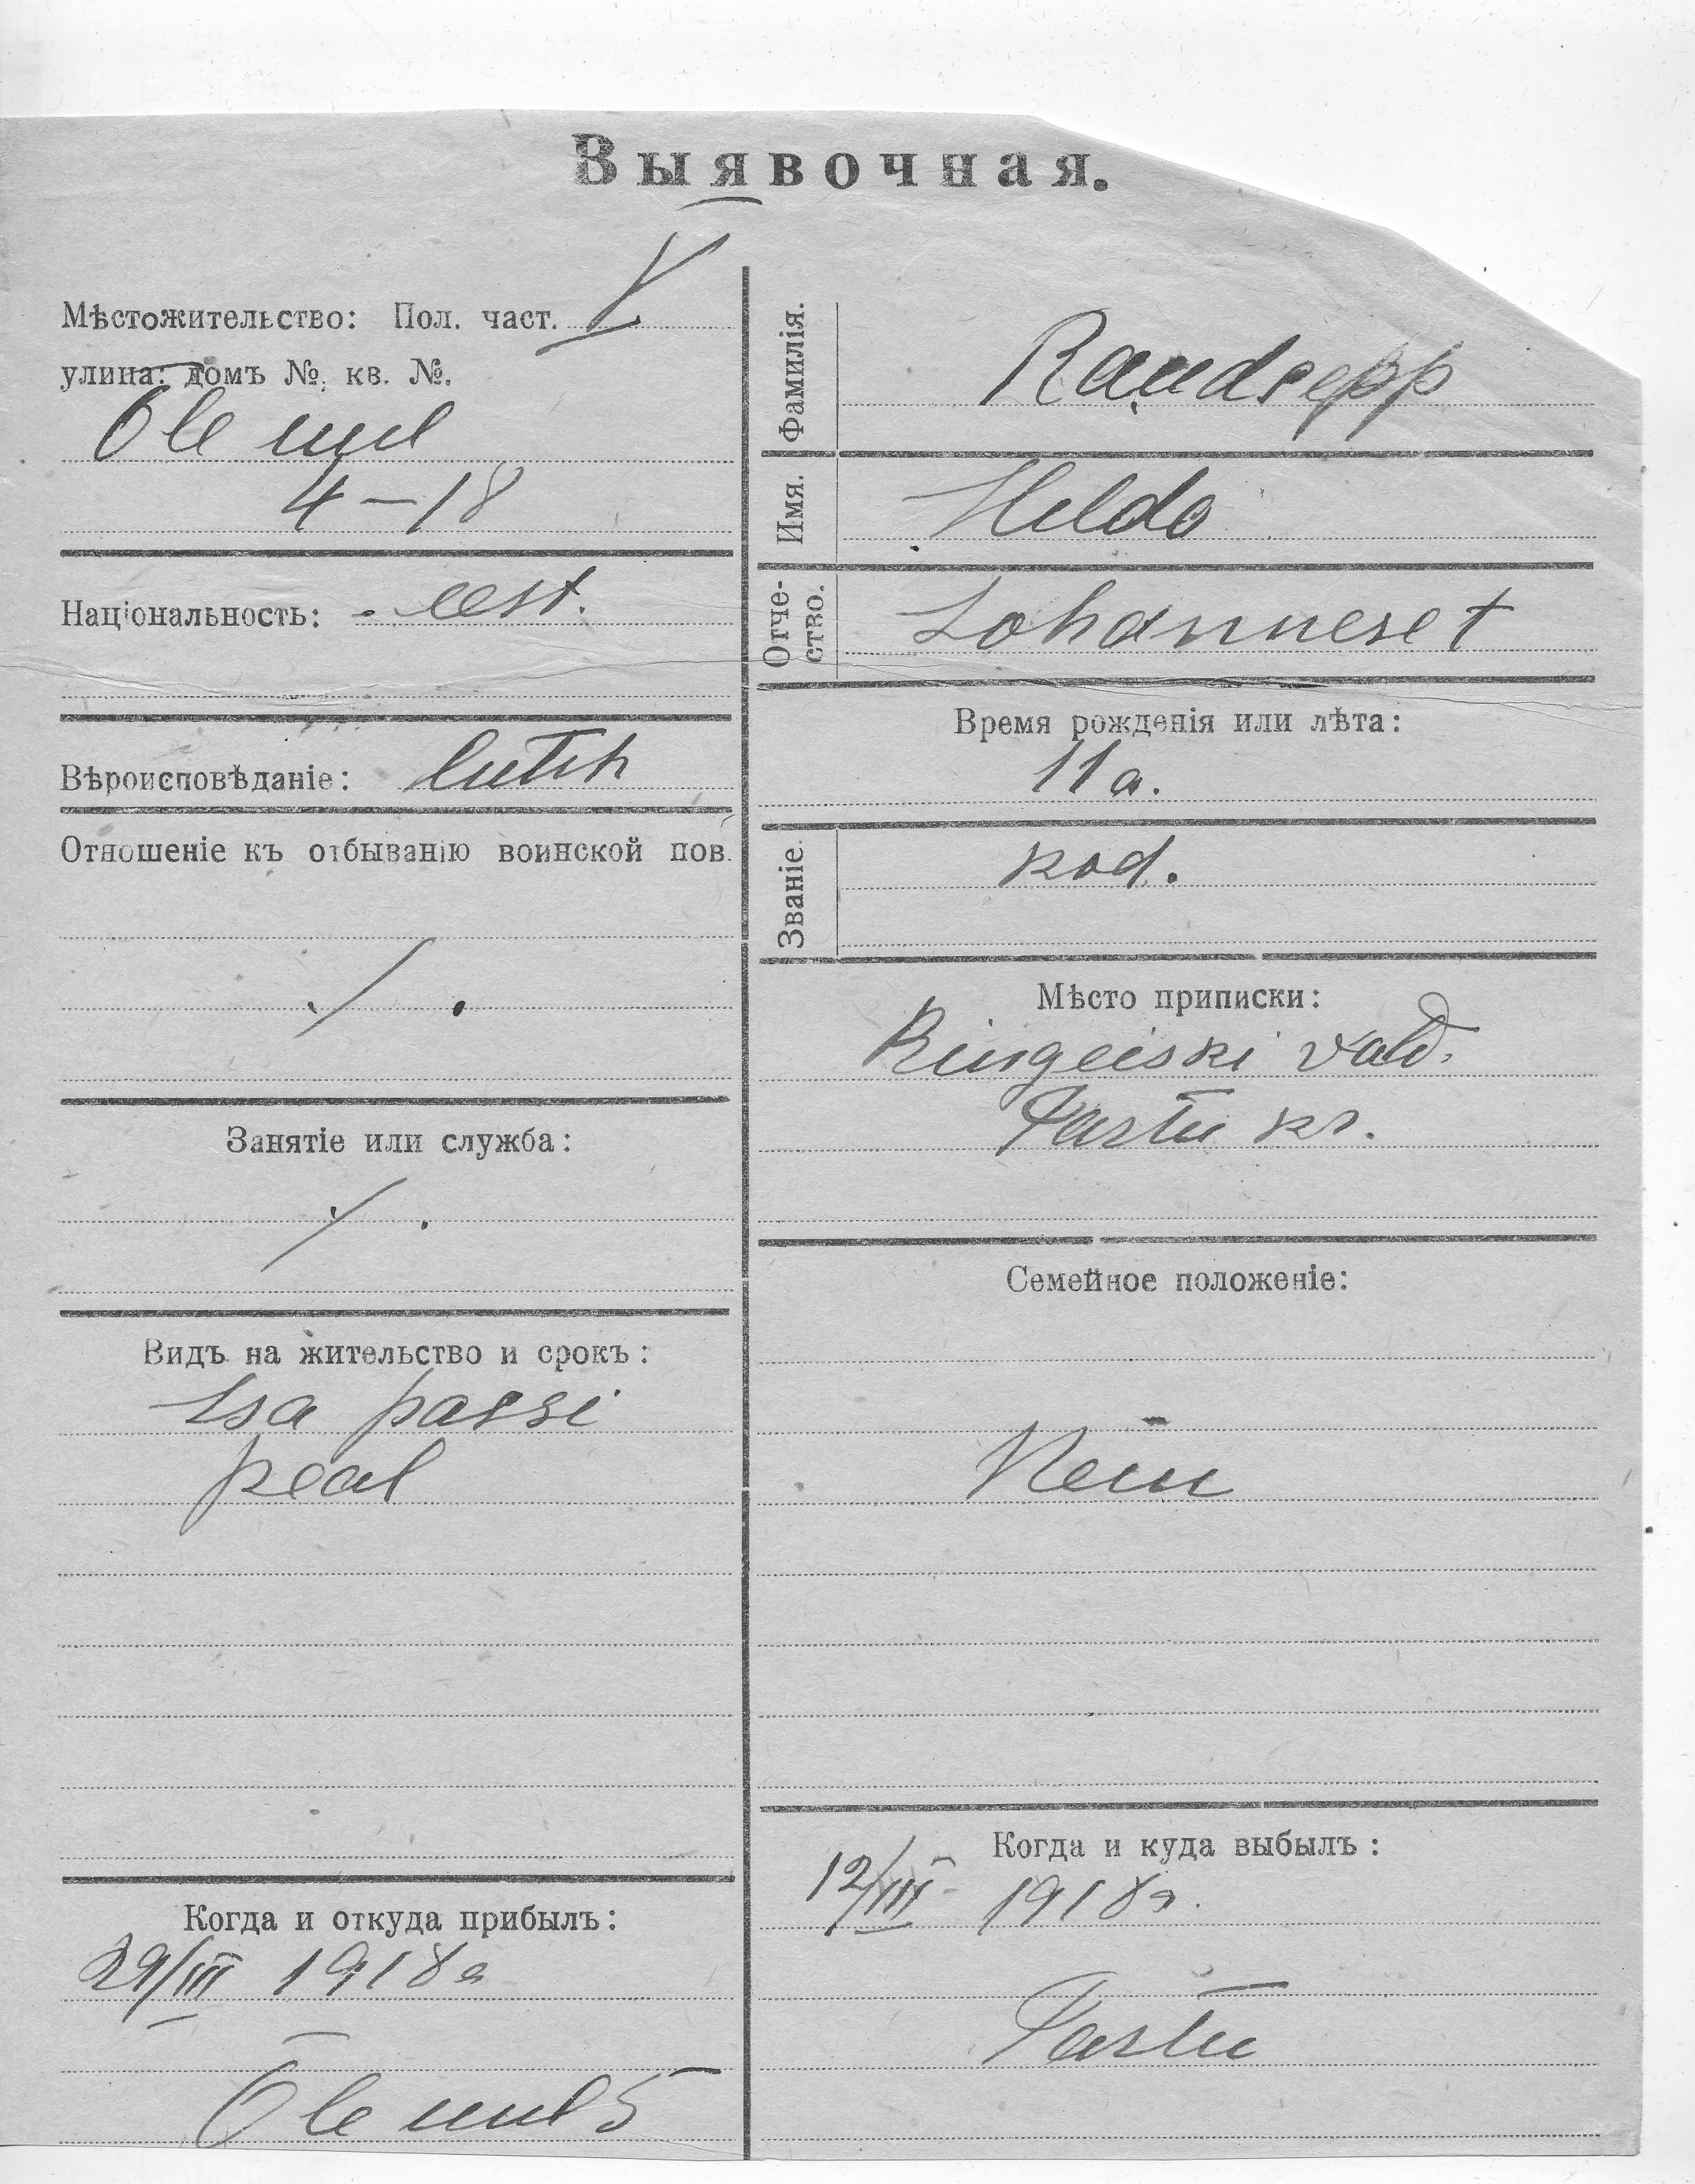 Выявочная.
Мѣстожительство: Пол. част. V
улица: домъ №. кв. №.
4 – 18
Національность: eest.
Вѣроисповѣданіе: luth
Отношеніе къ отбыванію воинской пов.
Занятіе или служба:
Видъ на жительство и срокъ:
Isa passi
peal
Когда и откуда прибылъ:
29/III 1918 a
Фамилія. Raudsepp
Имя. Hilda
Отче-
ство. Johannese t
Время рожденія или лѣта:
11 a.
Званіе. kod.
Мѣсто приписки:
vald.
Tartu kr.
Семейное положеніе:
Когда и куда выбылъ:
12/III 1918 a.
Tartu